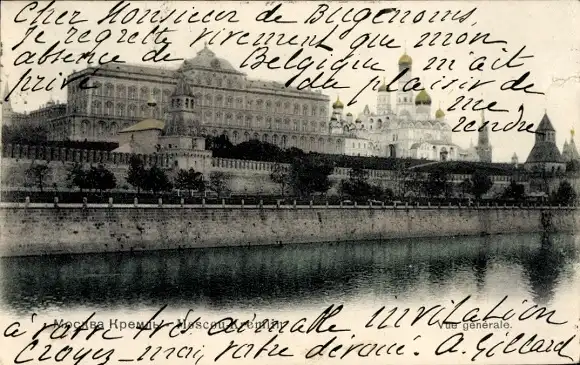 Cher Monsieur de Bugenoms,
Je regrette vivement que mon
absence de Belgique m'ait
privé du plaisir de
me
rendre
Москва Кремль - Moscou Kremlin
Vue générale.
à votre très aimable invitation
Croyez-moi, votre dévoué. A. Gillard